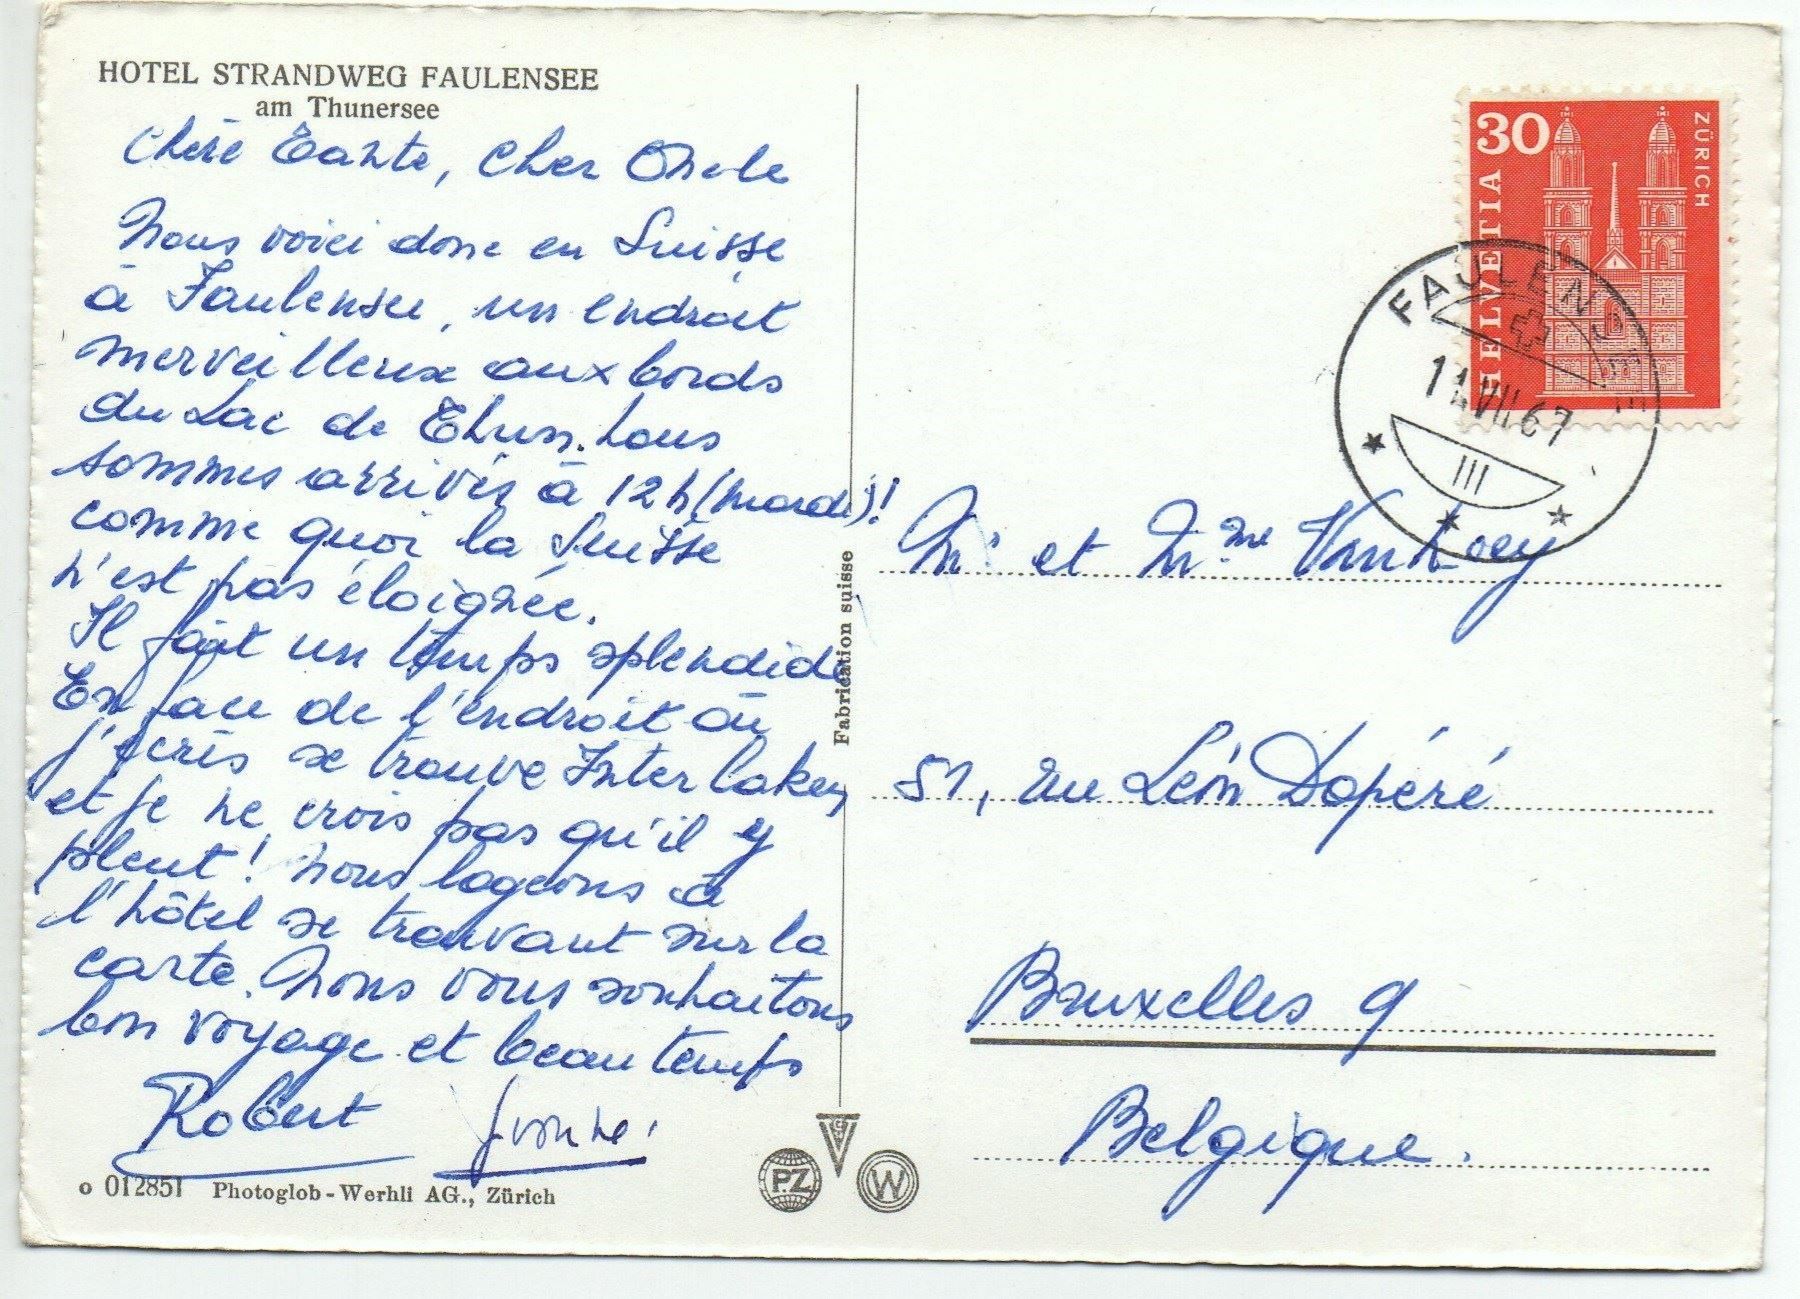 HOTEL STRANDWEG FAULENSEE
am Thunersee
Chère Tante, Cher Oncle
Nous voici donc en Suisse
à Faulensee, un endroit
merveilleux aux bords
du Lac de Thun. Nous
sommes arrivés à 12h (mardi)!
comme quoi la Suisse
n'est pas éloignée.
Il fait un temps splendide
En face de l'endroit où
j'écris se trouve Interlaken
et je ne crois pas qu'il y
pleut! Nous logeons à
l'hôtel se trouvant sur la
carte. Nous vous souhaitons
bon voyage et beau temps
Robert Yvonne.
o 012851 Photoglob-Werhli AG., Zürich
Fabrication suisse
PZ
W
30
HELVETIA
ZÜRICH
FAULENSEE
VII 67
III
Mr et Mme Vanhoey
51, rue Léon Dopéré
Bruxelles 9
Belgique.